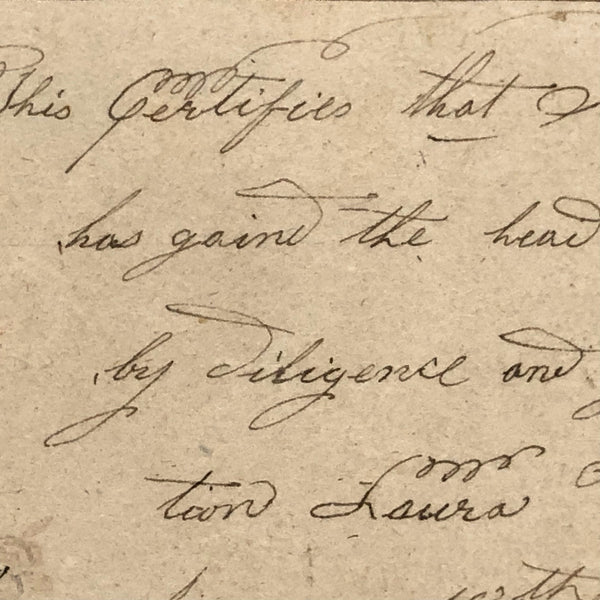 This Certifies that
has gaind the head
by diligence and
tion Laura